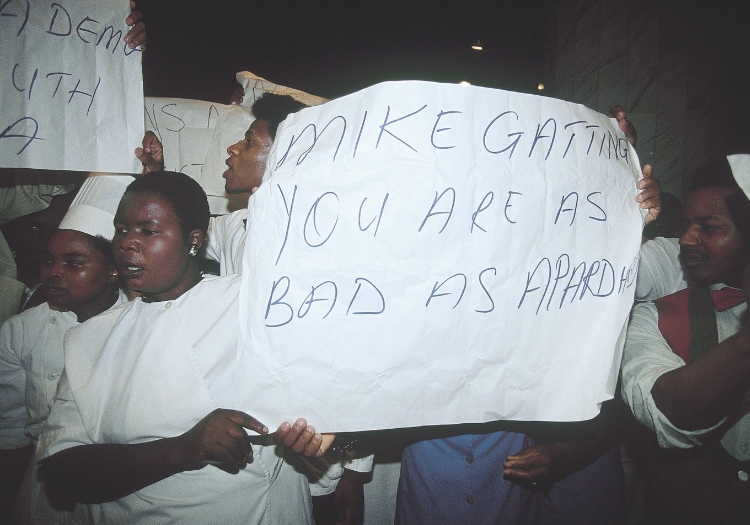 A DEMO
UTH
A
NS
MIKE GATTING
YOU ARE AS
BAD AS APARDHE